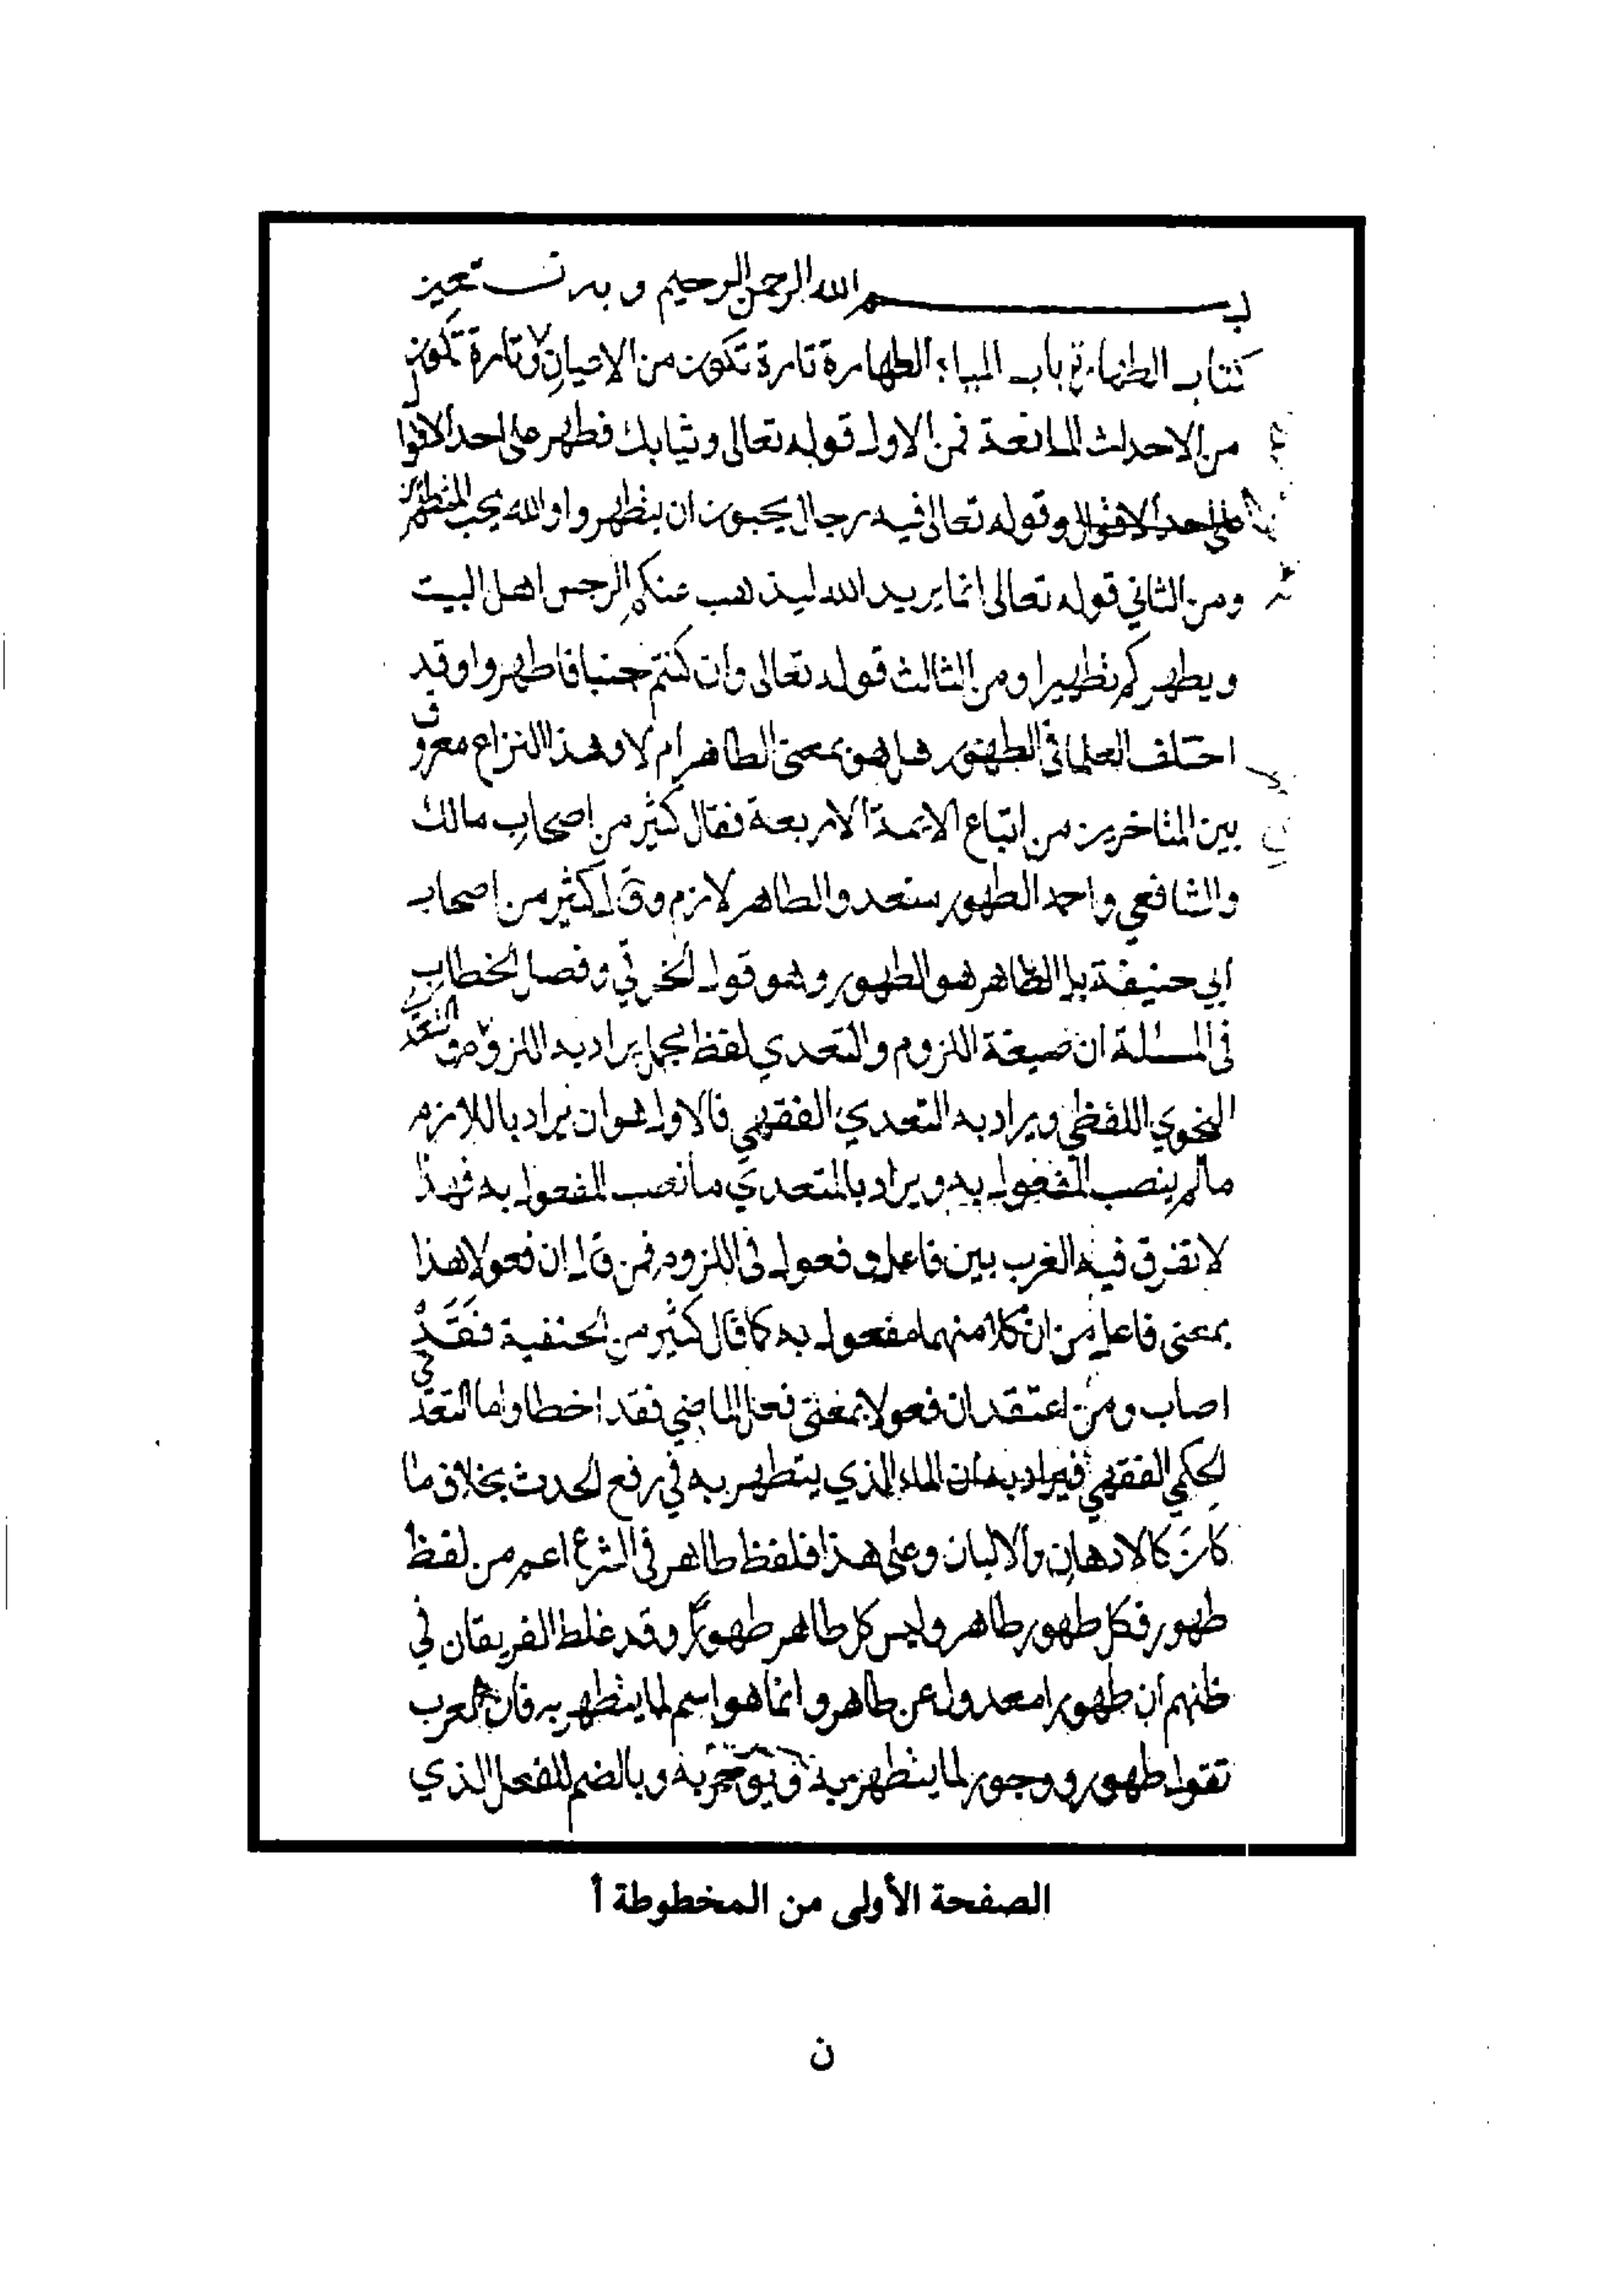 بسم الله الرحمن الرحيم وبه نستعين
كتاب الطهارة باب المياه الطهارة تارة تكون من الاعيان وتارة تكون
من الاحداث المانعة فمن الاول قوله تعالى وثيابك فطهر على احد الاقوا
على احد الاقوال وقوله تعالى فيه رجال يحبون ان يتطهروا والله يحب المتطهرين
ومن الثاني قوله تعالى انما يريد الله ليذهب عنكم الرجس اهل البيت
ويطهركم تطهيرا ومن الثالث قوله تعالى وان كنتم جنبا فاطهروا وقد
اختلف العلما في الطهور هل هو بمعنى الطاهر ام لا وهذا النزاع معروف
بين المتاخرين من اتباع الايمة الاربعة فقال كثير من اصحاب مالك
والشافعي واحمد الطهور متعد والطاهر لازم وقال كثير من اصحاب
ابي حنيفة بل الطاهر هو الطهور وهو قول الخرقي وفصل الخطاب
في المسئلة ان صيغة اللزوم والتعدي لفظ مجمل يراد به اللزوم والتعدي
النحوي اللفظي ويراد به التعدي الفقهي فالاول هو ان يراد باللازم
ما لم ينصب المفعول به ويراد بالمتعدي ما نصب المفعول به فهذا
لا تفرق فيه العرب بين فاعل و فعول في اللزوم فمن قال ان فعولا هذا
بمعنى فاعل من ان كلا منهما مفعول به كما قال كثير من الحنفية فقد
اصاب ومن اعتقد ان فعولا بمعنى فعل الماضي فقد اخطا واما التعدي
الحكمي الفقهي فيراد به ان الماء الذي يتطهر به في رفع الحدث بخلاف ما
كان كالادهان والالبان وعلى هذا فلفظ طاهر في الشرع اعم من لفظ
طهور فكل طهور طاهر وليس كل طاهر طهورا وقد غلط الفريقان في
ظنهم ان طهورا معدول عن طاهر وانما هو اسم لما يتطهر به فان العرب
تقول طهور و وجور لما يتطهر به ويوجر به وبالضم للفعل الذي
الصفحة الأولى من المخطوطة أ
ن